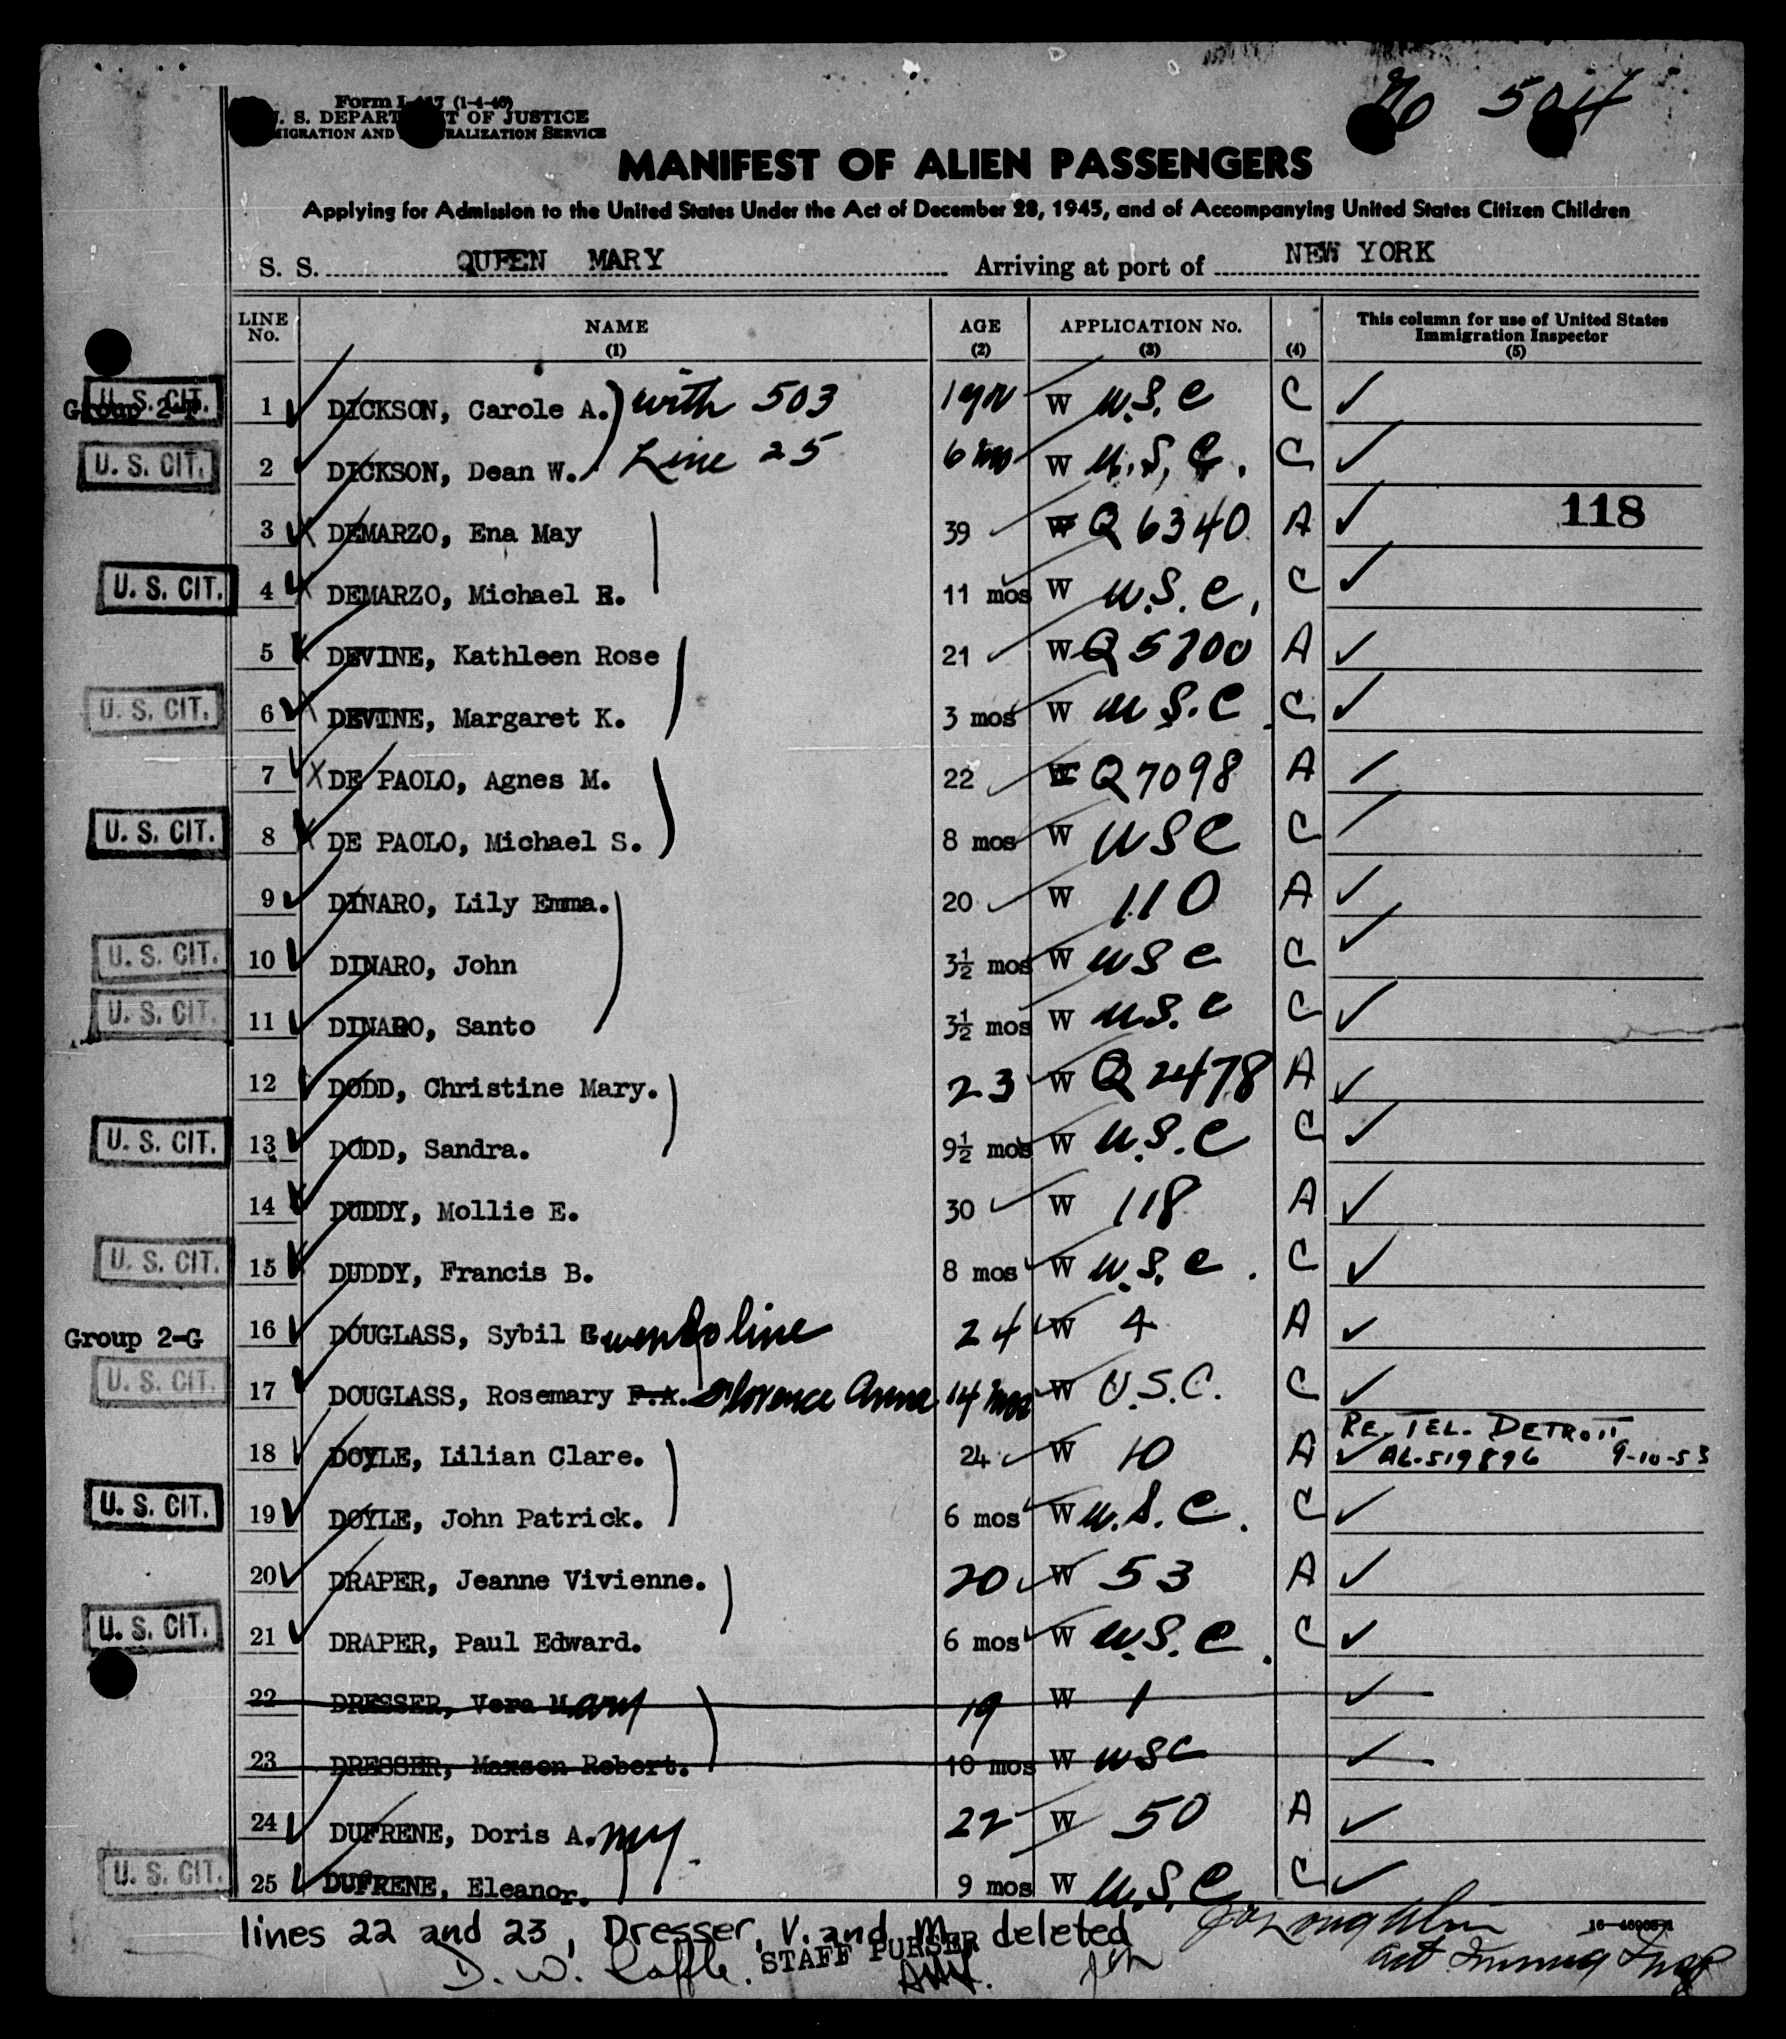 No 504
Form I-417 (1-4-46)
U. S. DEPARTMENT OF JUSTICE
IMMIGRATION AND NATURALIZATION SERVICE
MANIFEST OF ALIEN PASSENGERS
Applying for Admission to the United States Under the Act of December 28, 1945, and of Accompanying United States Citizen Children
S. S. QUEEN MARY Arriving at port of NEW YORK
LINE No. NAME (1) AGE (2) APPLICATION No. (3) (4) This column for use of United States Immigration Inspector (5)
U. S. CIT. Group 1 DICKSON, Carole A. with 503 1 yr W U.S.C C
U. S. CIT. 2 DICKSON, Dean W. Line 25 6 mos W U.S.C. C
3 X DEMARZO, Ena May 39 W Q 6340 A 118
U. S. CIT. 4 X DEMARZO, Michael E. 11 mos W U.S.C. C
5 X DEVINE, Kathleen Rose 21 W Q 5700 A
U. S. CIT. 6 X DEVINE, Margaret K. 3 mos W U.S.C. C
7 X DE PAOLO, Agnes M. 22 W Q 7098 A
U. S. CIT. 8 X DE PAOLO, Michael S. 8 mos W USC C
9 DINARO, Lily Emma. 20 W 110 A
U. S. CIT. 10 DINARO, John 3½ mos W USC C
U. S. CIT. 11 DINARO, Santo 3½ mos W U.S.C C
12 DODD, Christine Mary. 23 W Q 2478 A
U. S. CIT. 13 DODD, Sandra. 9½ mos W U.S.C C
14 DUDDY, Mollie E. 30 W 118 A
U. S. CIT. 15 DUDDY, Francis B. 8 mos W U.S.C. C
Group 2-G 16 DOUGLASS, Sybil Gwendoline 24 W 4 A
U. S. CIT. 17 DOUGLASS, Rosemary F.A. Florence Anna 14 mos W U.S.C. C
18 DOYLE, Lilian Clare. 24 W 10 A RE. TEL. DETROIT AL-519896 9-10-53
U. S. CIT. 19 DOYLE, John Patrick. 6 mos W U.S.C. C
20 DRAPER, Jeanne Vivienne. 20 W 53 A
U. S. CIT. 21 DRAPER, Paul Edward. 6 mos W U.S.C. C
22 DRESSER, Vera Mary 19 W 1
23 DRESSER, Maxson Robert. 10 mos W USC
24 DUFRENE, Doris A. my. 22 W 50 A
U. S. CIT. 25 DUFRENE, Eleanor. 9 mos W U.S.C C
lines 22 and 23, Dresser, V. and M. deleted
D. W. STAFF PURSER
Act Immig Insp